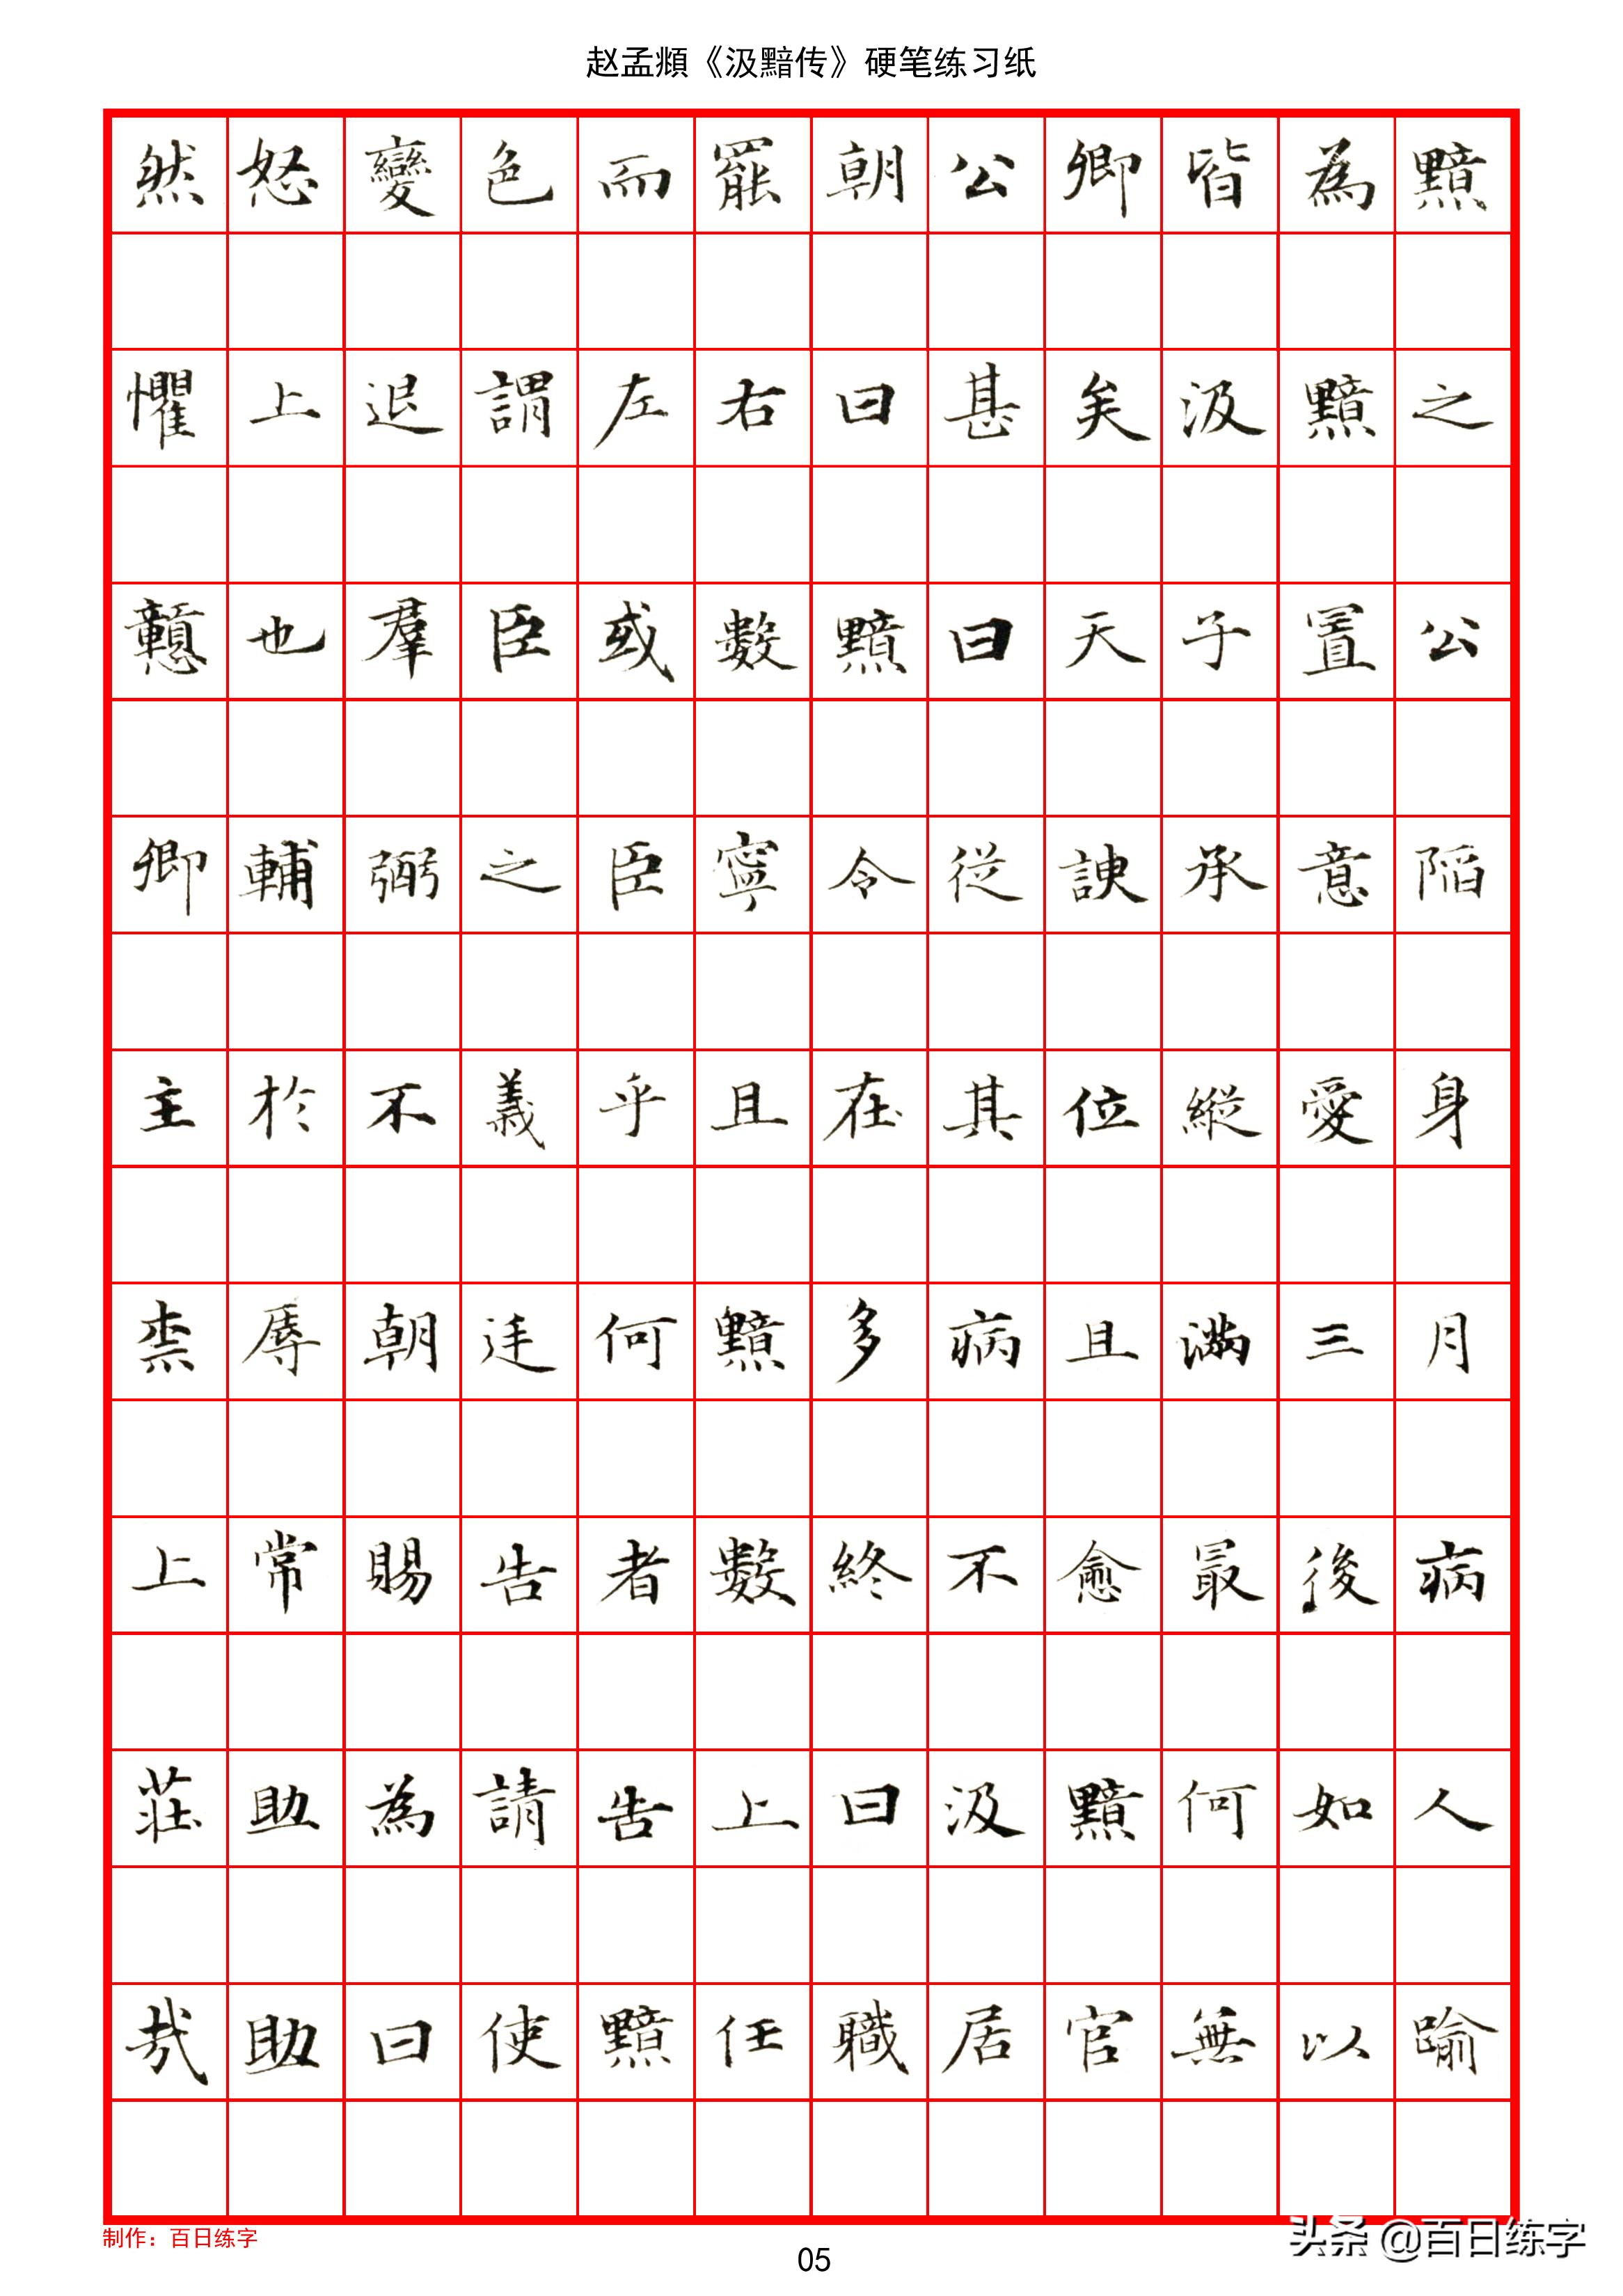 赵孟頫《汲黯传》硬笔练习纸
然怒變色而罷朝公卿皆為黯
懼上退謂左右曰甚矣汲黯之
戇也羣臣或數黯曰天子置公
卿輔弼之臣寧令從諛承意陷
主於不義乎且在其位縱愛身
柰辱朝廷何黯多病且滿三月
上常賜告者數終不愈最後病
莊助為請告上曰汲黯何如人
哉助曰使黯任職居官無以踰
制作：百日练字
05
头条 @百日练字